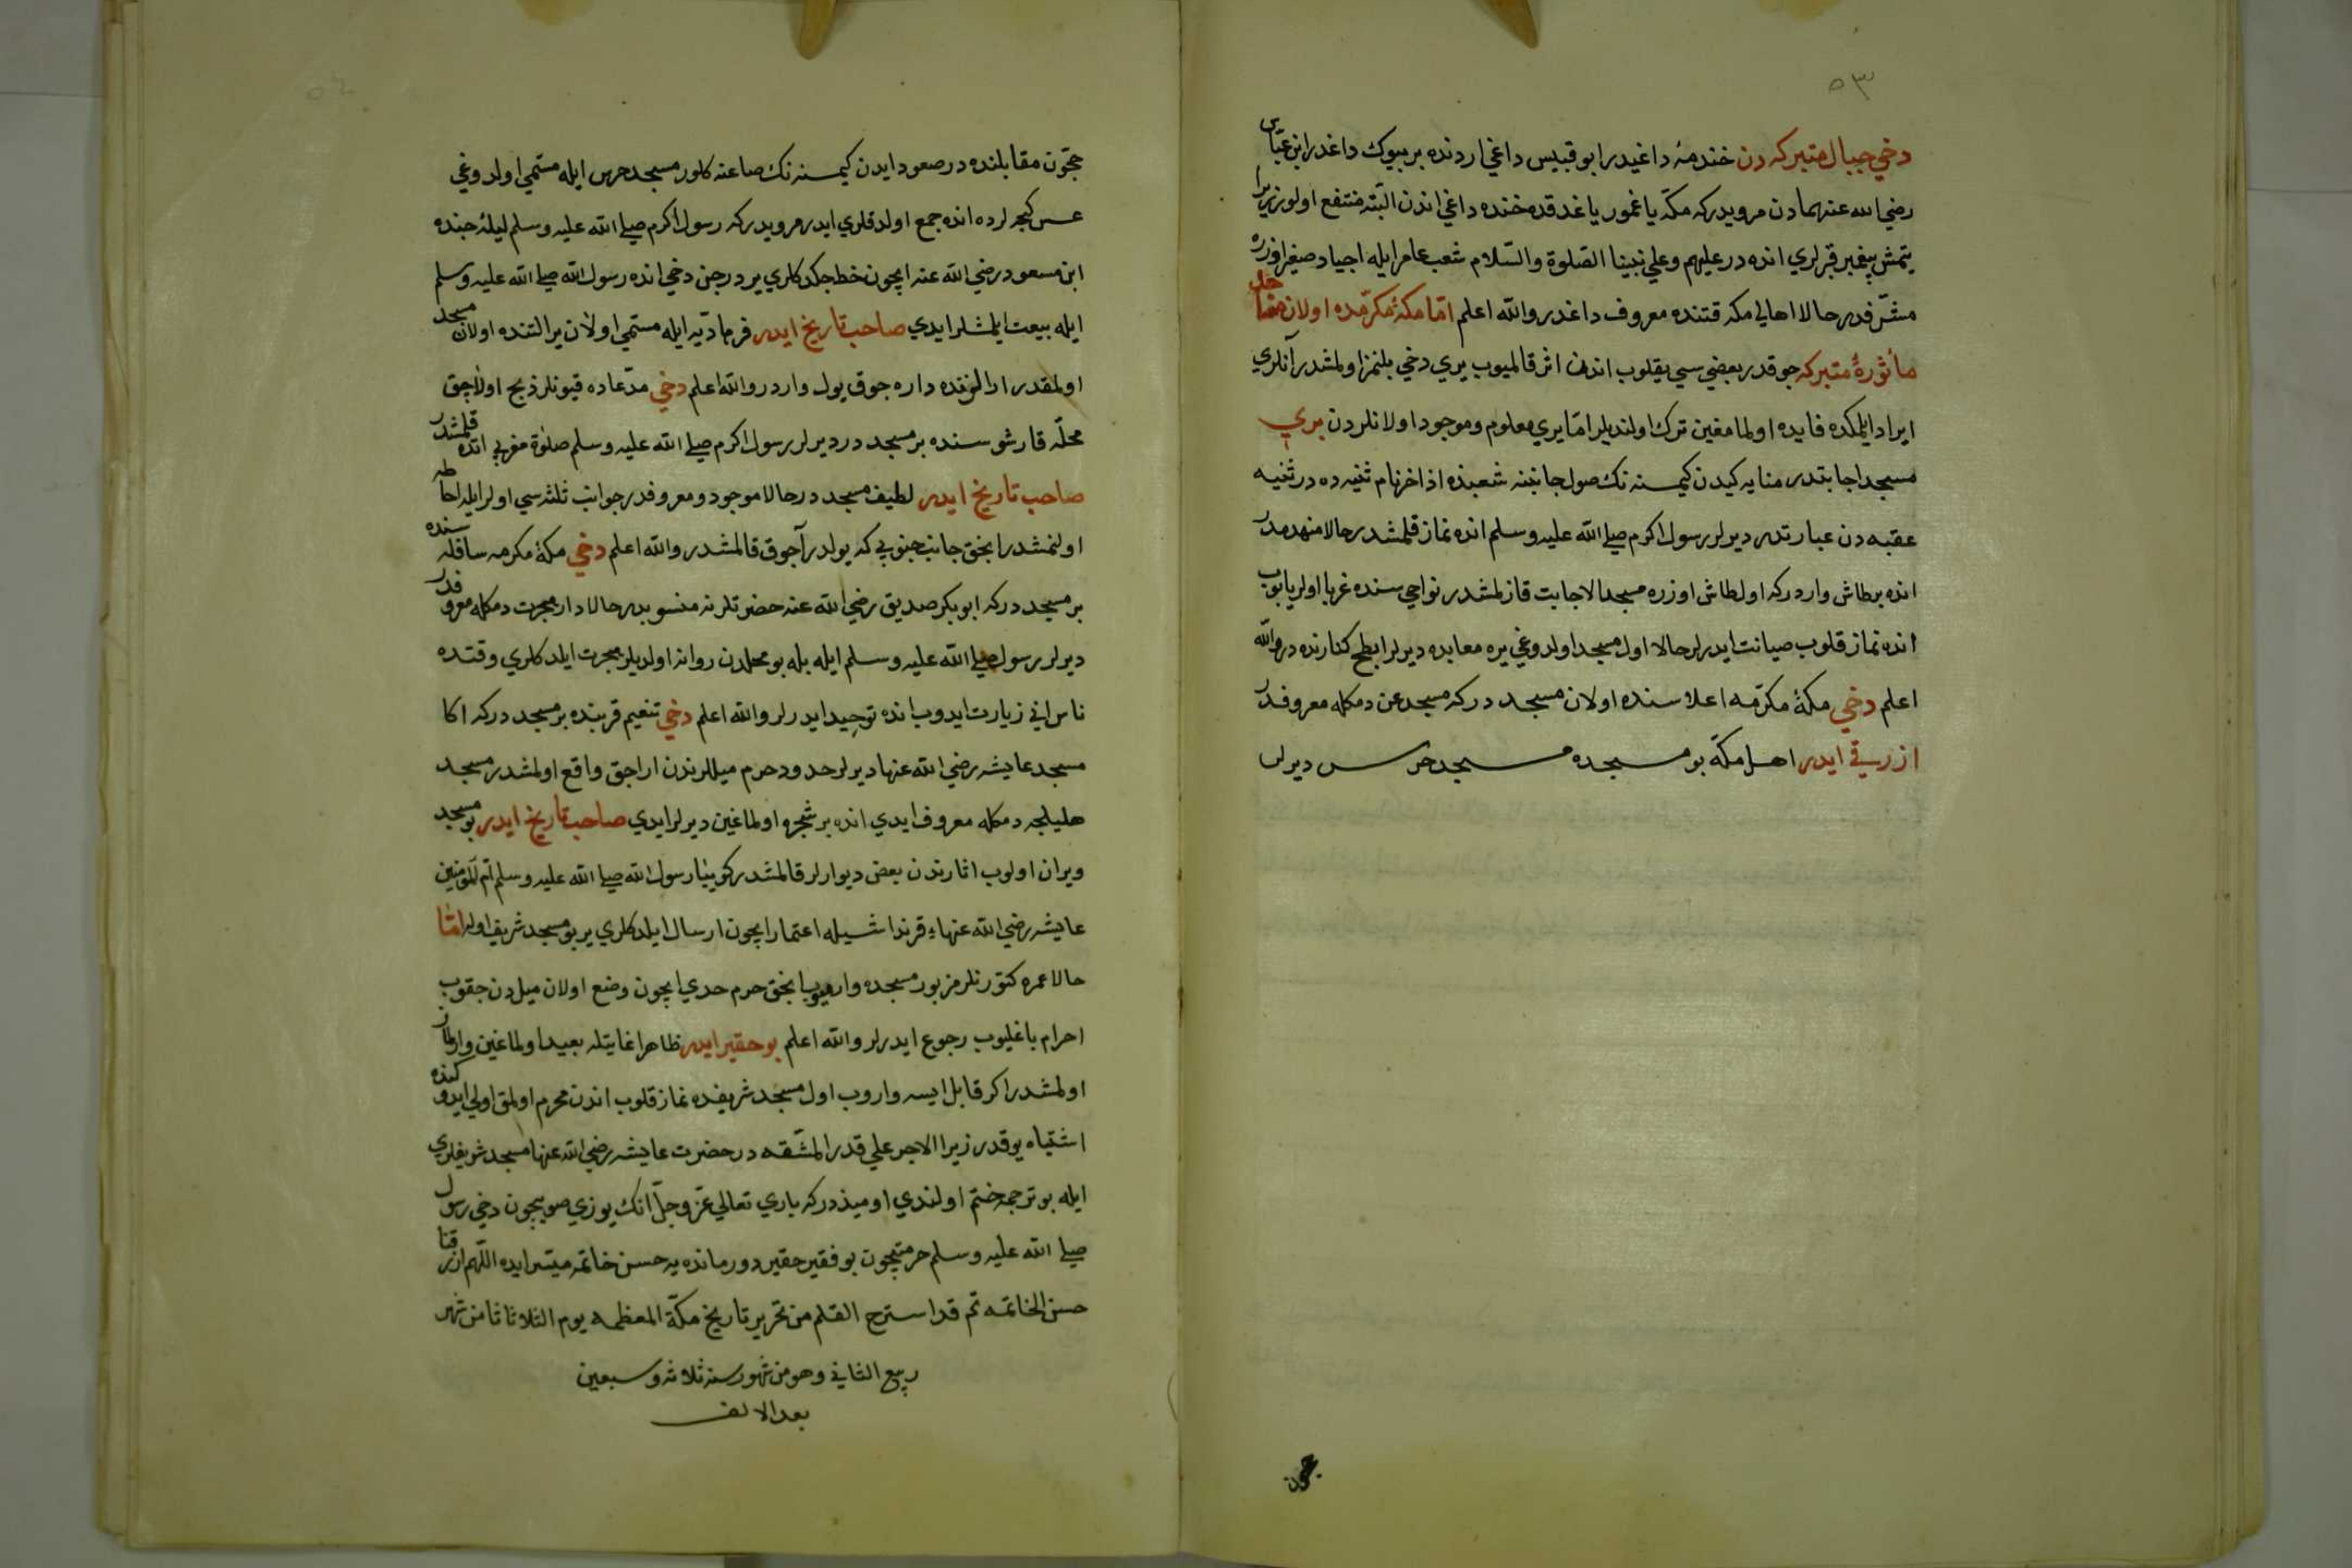 ٥٣
دخي جبال متبركه دن خندمهٔ داغيدر ابو قبيس داغي اردنده بر بيوك داغدر ابن عبّاس
رضي الله عنهمادن مرويدر كه مكّه يا غمور ياغدقده خنده داغي اندن البتّه منتفع اولور زيرا
يتمش پيغمبر قبرلري انده در عليهم وعلي نبينا الصّلوة والسّلام شعب عامر ايله اجياد صغير اوزره
مشرّفدر حالا اهالي مكه قتنده معروف داغدر والله اعلم امّا مكهٔ مكرّمده اولان مساجد
مأثورهٔ متبركه چوقدر بعضي سي يقلوب اندن اثر قالميوب يري دخي بلنمز اولمشدر آنلري
ايراد ايلمكده فايده اولمامغين ترك اولنديلر امّا يري معلوم وموجود اولانلردن بري
مسجد اجابتدر منايه كيدن كيمسنه نك صول جانبنه شعبنده اذاخر نام ثنيه ده در ثنيه
عقبه دن عبارتدر ديرلر رسول اكرم صلي الله عليه وسلم انده نماز قلمشدر حالا منهدمدر
انده بر طاش واردر كه اول طاش اوزره مسجد الاجابت قازلمشدر نواحي سنده غربا اولر يابوب
انده نماز قلوب صيانت ايدرلر حالا اول مسجد اولدوغي يره معابده ديرلر ابطح كنارنده در والله
اعلم دخي مكهٔ مكرّمه اعلا سنده اولان مسجد در كه مسجد جن دمكله معروفدر
ازرقي ايدر اهل مكّه بو مسجده مسجد حرس ديرلر
حجون
حجّون مقابلنده در صعود ايدن كيمسنه نك صاعنه كلور مسجد حرس ايله مسمّي اولدوغي
عسس كيجه لرده انده جمع اولدقلري ايدر مرويدر كه رسول اكرم صلي الله عليه وسلم ليلهٔ جنده
ابن مسعود رضي الله عنه ايچون خط چكدكلري يردر جن دخي انده رسول الله صلي الله عليه وسلم
ايله بيعت ايلمشلر ايدي صاحب تاريخ ايدر فرمادّيه ايله مسمّي اولان ير التنده اولان مسجد
اولمقدر الننده داره جوق يول واردر والله اعلم دخي مدّعاده قيونلر ذبح اولاجق
محلّه قارشو سنده بر مسجد در ديرلر رسول اكرم صلي الله عليه وسلم صلوة مغربي انده قلمشدر
صاحب تاريخ ايدر لطيف مسجد در حالا موجود ومعروفدر جوانب ثلثه سي اولر ايله احاطه
اولنمشدر انجق جانب جنوبي كه يولدر آجوق قالمشدر والله اعلم دخي مكهٔ مكرمه سافله سنده
بر مسجد در كه ابو بكر صديق رضي الله عنه حضرتلرنه منسوبدر حالا دار هجرت دمكله معروفدر
ديرلر رسول صلي الله عليه وسلم ايله بله بو محلدن روانه اولديلر هجرت ايلدكلري وقتده
ناس اني زيارت ايدوب انده توحيد ايدرلر والله اعلم دخي تنعيم قربنده بر مسجد در كه اكا
مسجد عايشه رضي الله عنها ديرلر حدود حرم ميللرندن اراجق واقع اولمشدر مسجد
هليلجه دمكله معروف ايدي انده بر شجره اولماغين ديرلر ايدي صاحب تاريخ ايدر بو مسجد
ويران اولوب اثارندن بعض ديوارلر قالمشدر كويّيا رسول الله صلي الله عليه وسلم امّ المؤمنين
عايشه رضي الله عنهاء قرنداشيله اعتمار ايچون ارسال ايلدكلري ير بو مسجد شريف اوله امّا
حالا عمره كتورنلر مزبور مسجده واروميوب انجق حرم حدي ايچون وضع اولان ميلدن چقوب
احرام باغليوب رجوع ايدرلر والله اعلم بو حقير ايدر ظاهرا غايتله بعيد اولماغين وارلماز
اولمشدر اكر قابل ايسه واروب اول مسجد شريفده نماز قلوب اندن محرم اولمق اولي ايدوكنده
اشتباه يوقدر زيرا الاجر علي قدر المشقّه در حضرت عايشه رضي الله عنها مسجد شريفلري
ايله بو ترجمه ختم اولندي اوميذدر كه باري تعالي عزّ وجلّ انك يوزي صوييچون دخي رسول
صلي الله عليه وسلم حرمتيچون بو فقير حقير دورمانده يه حسن خاتمه ميسّر ايده اللّهم ارزقنا
حسن الخاتمه تم قد استرح القلم من تحرير تاريخ مكّة المعظمه يوم الثلاثا ثامن شهر
ربيع الثاني وهو من شهور سنه ثلاثه وسبعين
بعد الالف